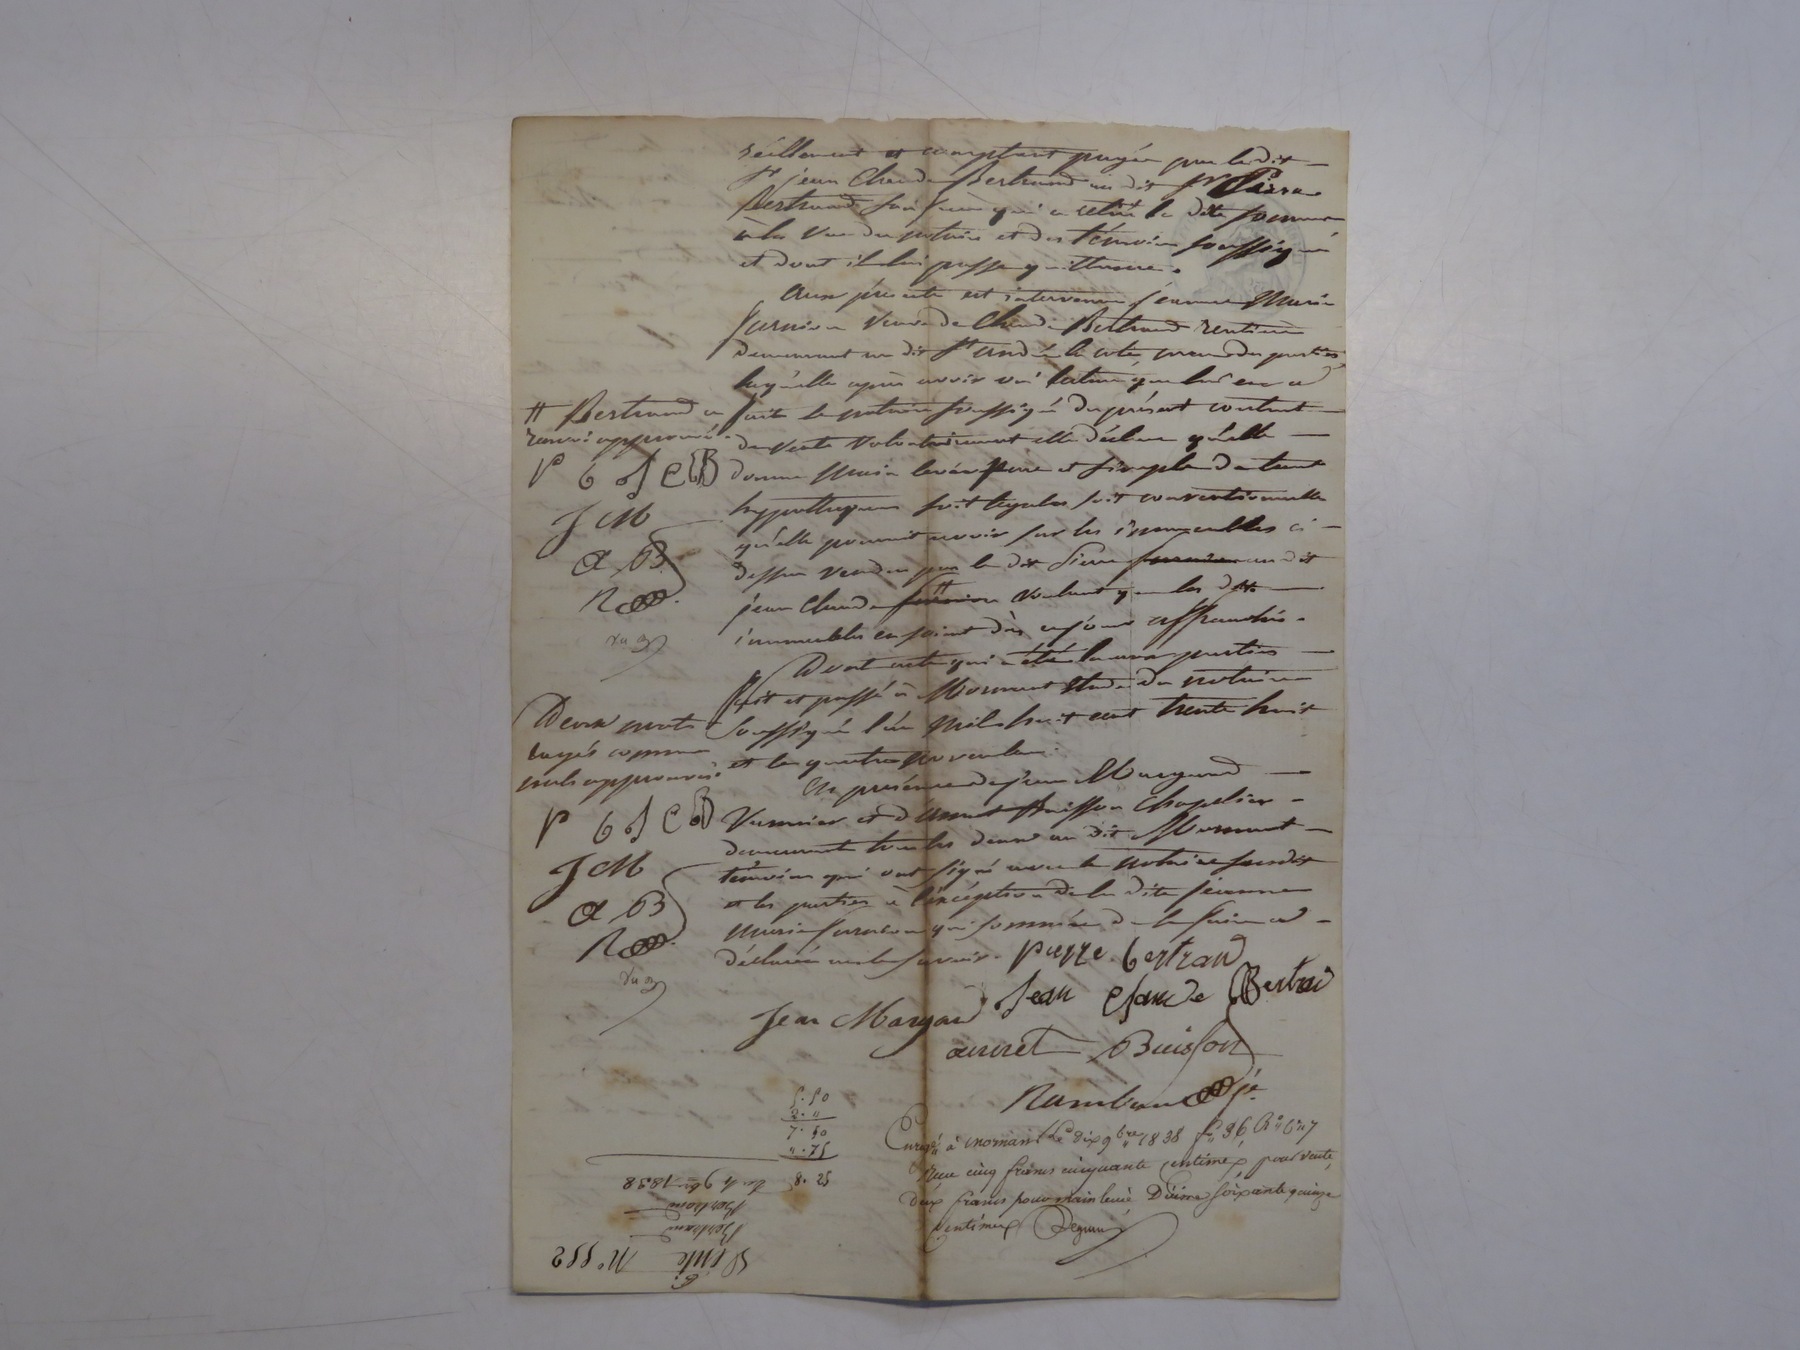 réellement et comptant payée par le dit
Sr jean Claude Bertrand au dit Sr Pierre
Bertrand son frère qui a retiré la dite somme
à la vue du notaire et des témoins soussignés
et dont il lui passe quittance.
Aux présentes est intervenue jeanne Marie
veuve de Claude Bertrand rentière
demeurant au dit St andré la cote, mère des parties
laquelle après avoir oui lecture que lui en a
faite le notaire soussigné du présent contrat
de vente volontairement elle déclare qu'elle
donne main levée pure et simple de toute
hypothèque soit légales soit conventionnelle
qu'elle pourrait avoir sur les immeubles ci
dessus vendus par le dit Pierre au dit
jean Claude voulant que les dits
immeubles en soient dès ce jour affranchis.
Dont acte qui a été lu aux parties
fait et passé à Mornant étude du notaire
soussigné l'an mil huit cent trente huit
et le quatre novembre.
En présence de jean Margand
et d'annet Buisson chapelier
demeurant tous les deux au dit Mornant
témoins qui ont signé avec le notaire susdit
et les parties à l'exception de la dite jeanne
marie qui sommée de le faire a
déclaré ne le savoir.
# Bertrand
renvoi approuvé
P b J C B
J M
a B
R
Deux mots
rayés comme
nuls approuvés
P b J C B
J M
a B
R
pierre bertrand
Jean Claude Bertrand
Jean Margand
annet Buisson
Enregé à mornant le dix 9bre 1838 fo 96
Reçu cinq francs cinquante centimes pour vente,
deux francs pour main levée Décime soixante quinze
centimes
5.50
2.0
7.50
".75
8.25
du 4 9bre 1838
Bertrand
Bertrand
Vente No 552